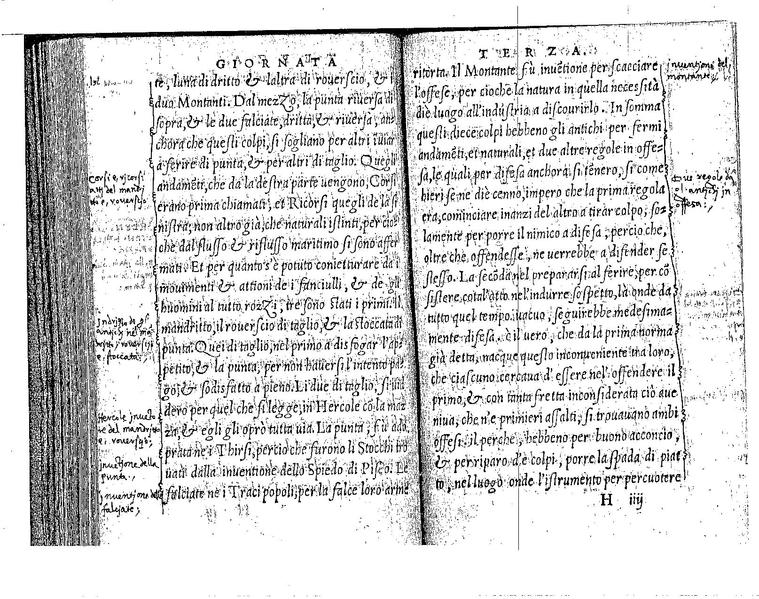 GIORNATA
te, l'una di dritto & l'altra di rouerscio, & i
duo Montanti. Dal mezzo, la punta riuersa di
sopra, & le due falciate, dritta, & riuersa, an-
chora che questi colpi, si sogliano per altri
a ferire di punta, & per altri di taglio. Quegli
andamēti, che da la destra parte uengono, Corsi
erano prima chiamati, et Ricorsi quegli de la si
nistra, non altro già, che naturali istinti, per cio
che dal flusso & riflusso maritimo si sono affer
mati. Et per quanto s'è potuto conietturare da i
mouimenti & attioni de i fanciulli, & de gli
huomini al tutto rozzi, tre sono stati i primi. Il
mandritto, il rouerscio di taglio, & la stoccata di
punta. Quei di taglio, nel primo a disfogar l'ap
petito, & la punta, per non hauersi l'intento pa
go, & sodisfatto a pieno. Li due di taglio, si uid
dero per quel che si legge, in Hercole cō la maz
za, & egli gli oprò tutta uia. La punta, fu ado
prata ne i Thirsi, percio che furono li Stocchi tro
uati dalla inuentione dello Spiedo di Piseo. Le
falciate ne i Traci popoli, per la falce loro arme
Corsi e, ricorsi
atti del mandri
tti e, rouersijo
Hercole inuēto
re del mandritto
e, rouersij;
inuētione della
punta.
inuentione delle
falciate;
TERZA.
ritorta. Il Montante fù inuētione per scacciare
l'offese, per cioche la natura in quella necessità
diè luogo all'indústria a discourirlo. In somma
questi diece colpi hebbeno gli antichi per fermi
andamēti, et naturali, et due altre regole in offe-
sa, le quali per difesa anchora si tenero, si come
hieri se ne diè cenno, impero che la prima regola
era, cominciare inanzi del altro a tirar colpo, so-
lamente per porre il nimico a difesa, percio che,
oltre che offendesse, ne uerrebbe a difender se
stesso. La secōda nel prepararsi al ferire, per cō
sistere cotal'atto nel'indurre sospetto, là onde da
tutto quel tempo uacuo, seguirebbe medesima-
mente difesa. è il uero, che da la prima norma
già detta, nacque questo inconueniente tra loro,
che ciascuno cercaua d'essere nel'offendere il
primo, & con tanta fretta inconsiderata ciò aue
niua, che n'e primieri assalti, si trouauano ambi
offesi. il perche, hebbeno per buono acconcio,
& per riparo d'e colpi, porre la spada di piat
to, nel luogo onde l'istrumento per percuotere
H iiij
inuentione del
montante.
Due regole di
gl'antichi in
offesa;